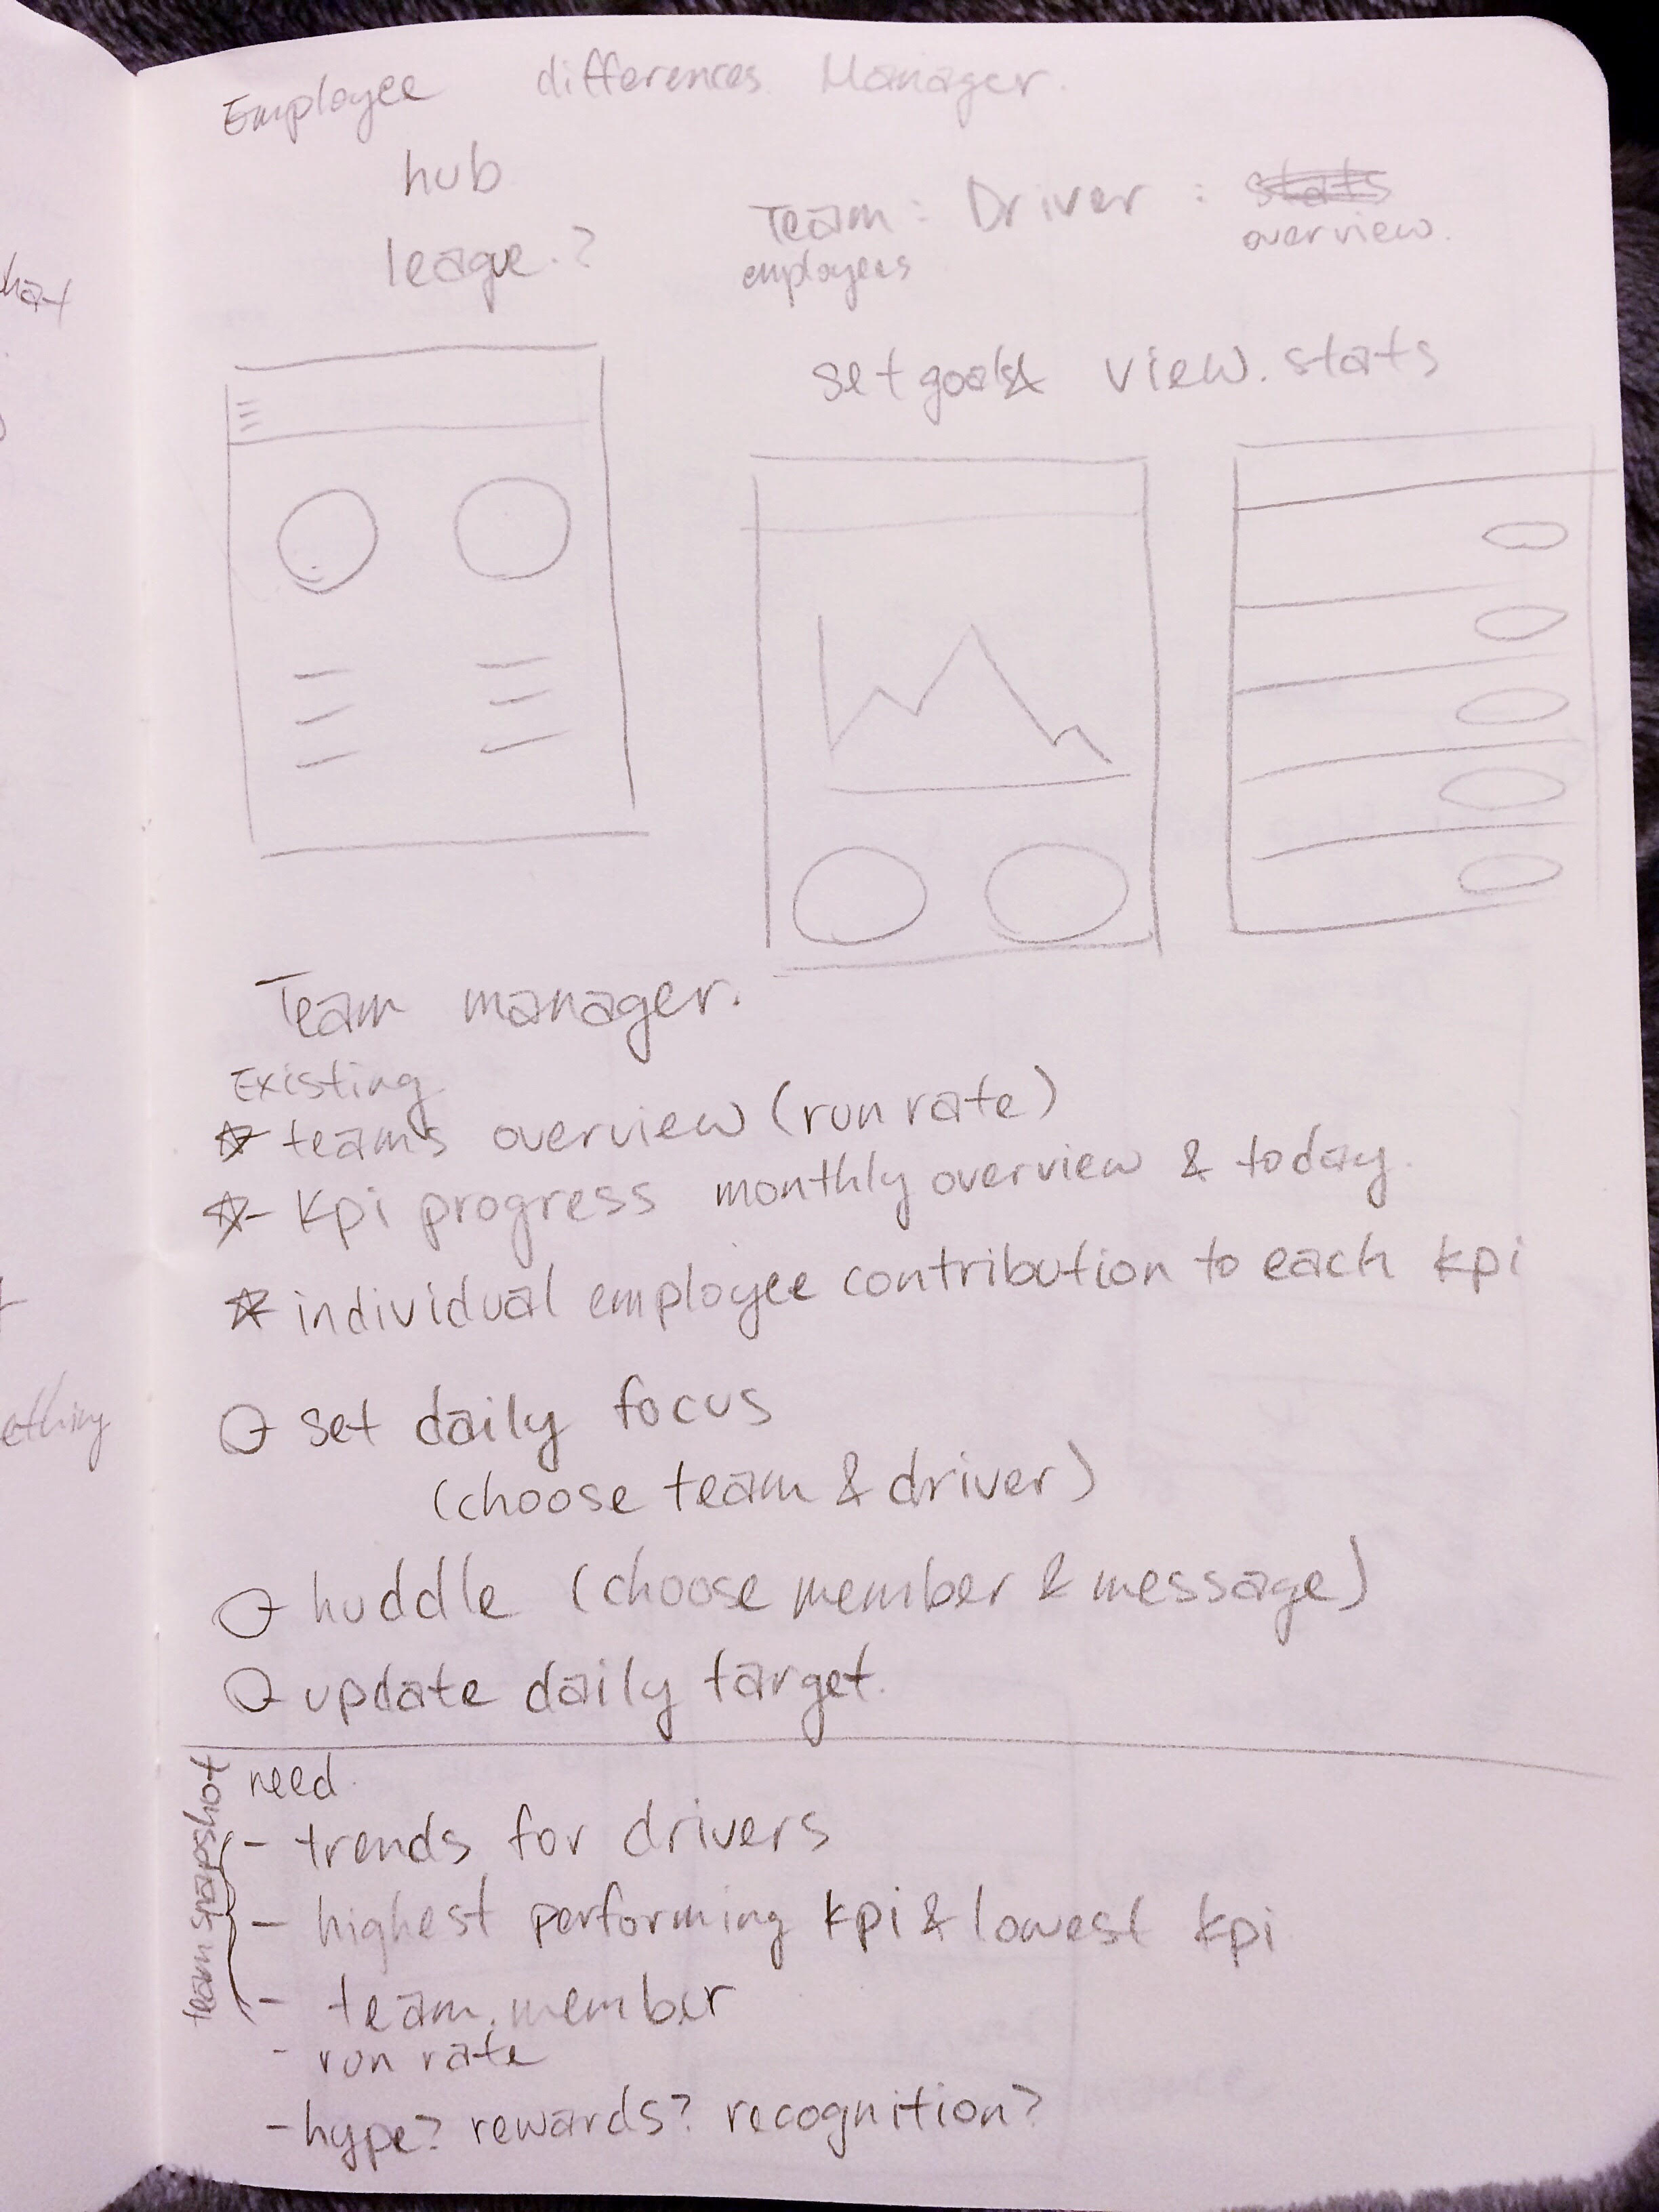 Employee differences Manager.
hub
league.?
Team: Driver: stats
employees overview.
set goals & view. stats
Team manager.
Existing
teams overview (run rate)
- Kpi progress monthly overview & today.
individual employee contribution to each kpi
set daily focus
(choose team & driver)
huddle (choose member & message)
update daily target.
need
team snapshot
- trends for drivers
- highest performing kpi & lowest kpi
- team member
- run rate
- hype? rewards? recognition?
hat
ething